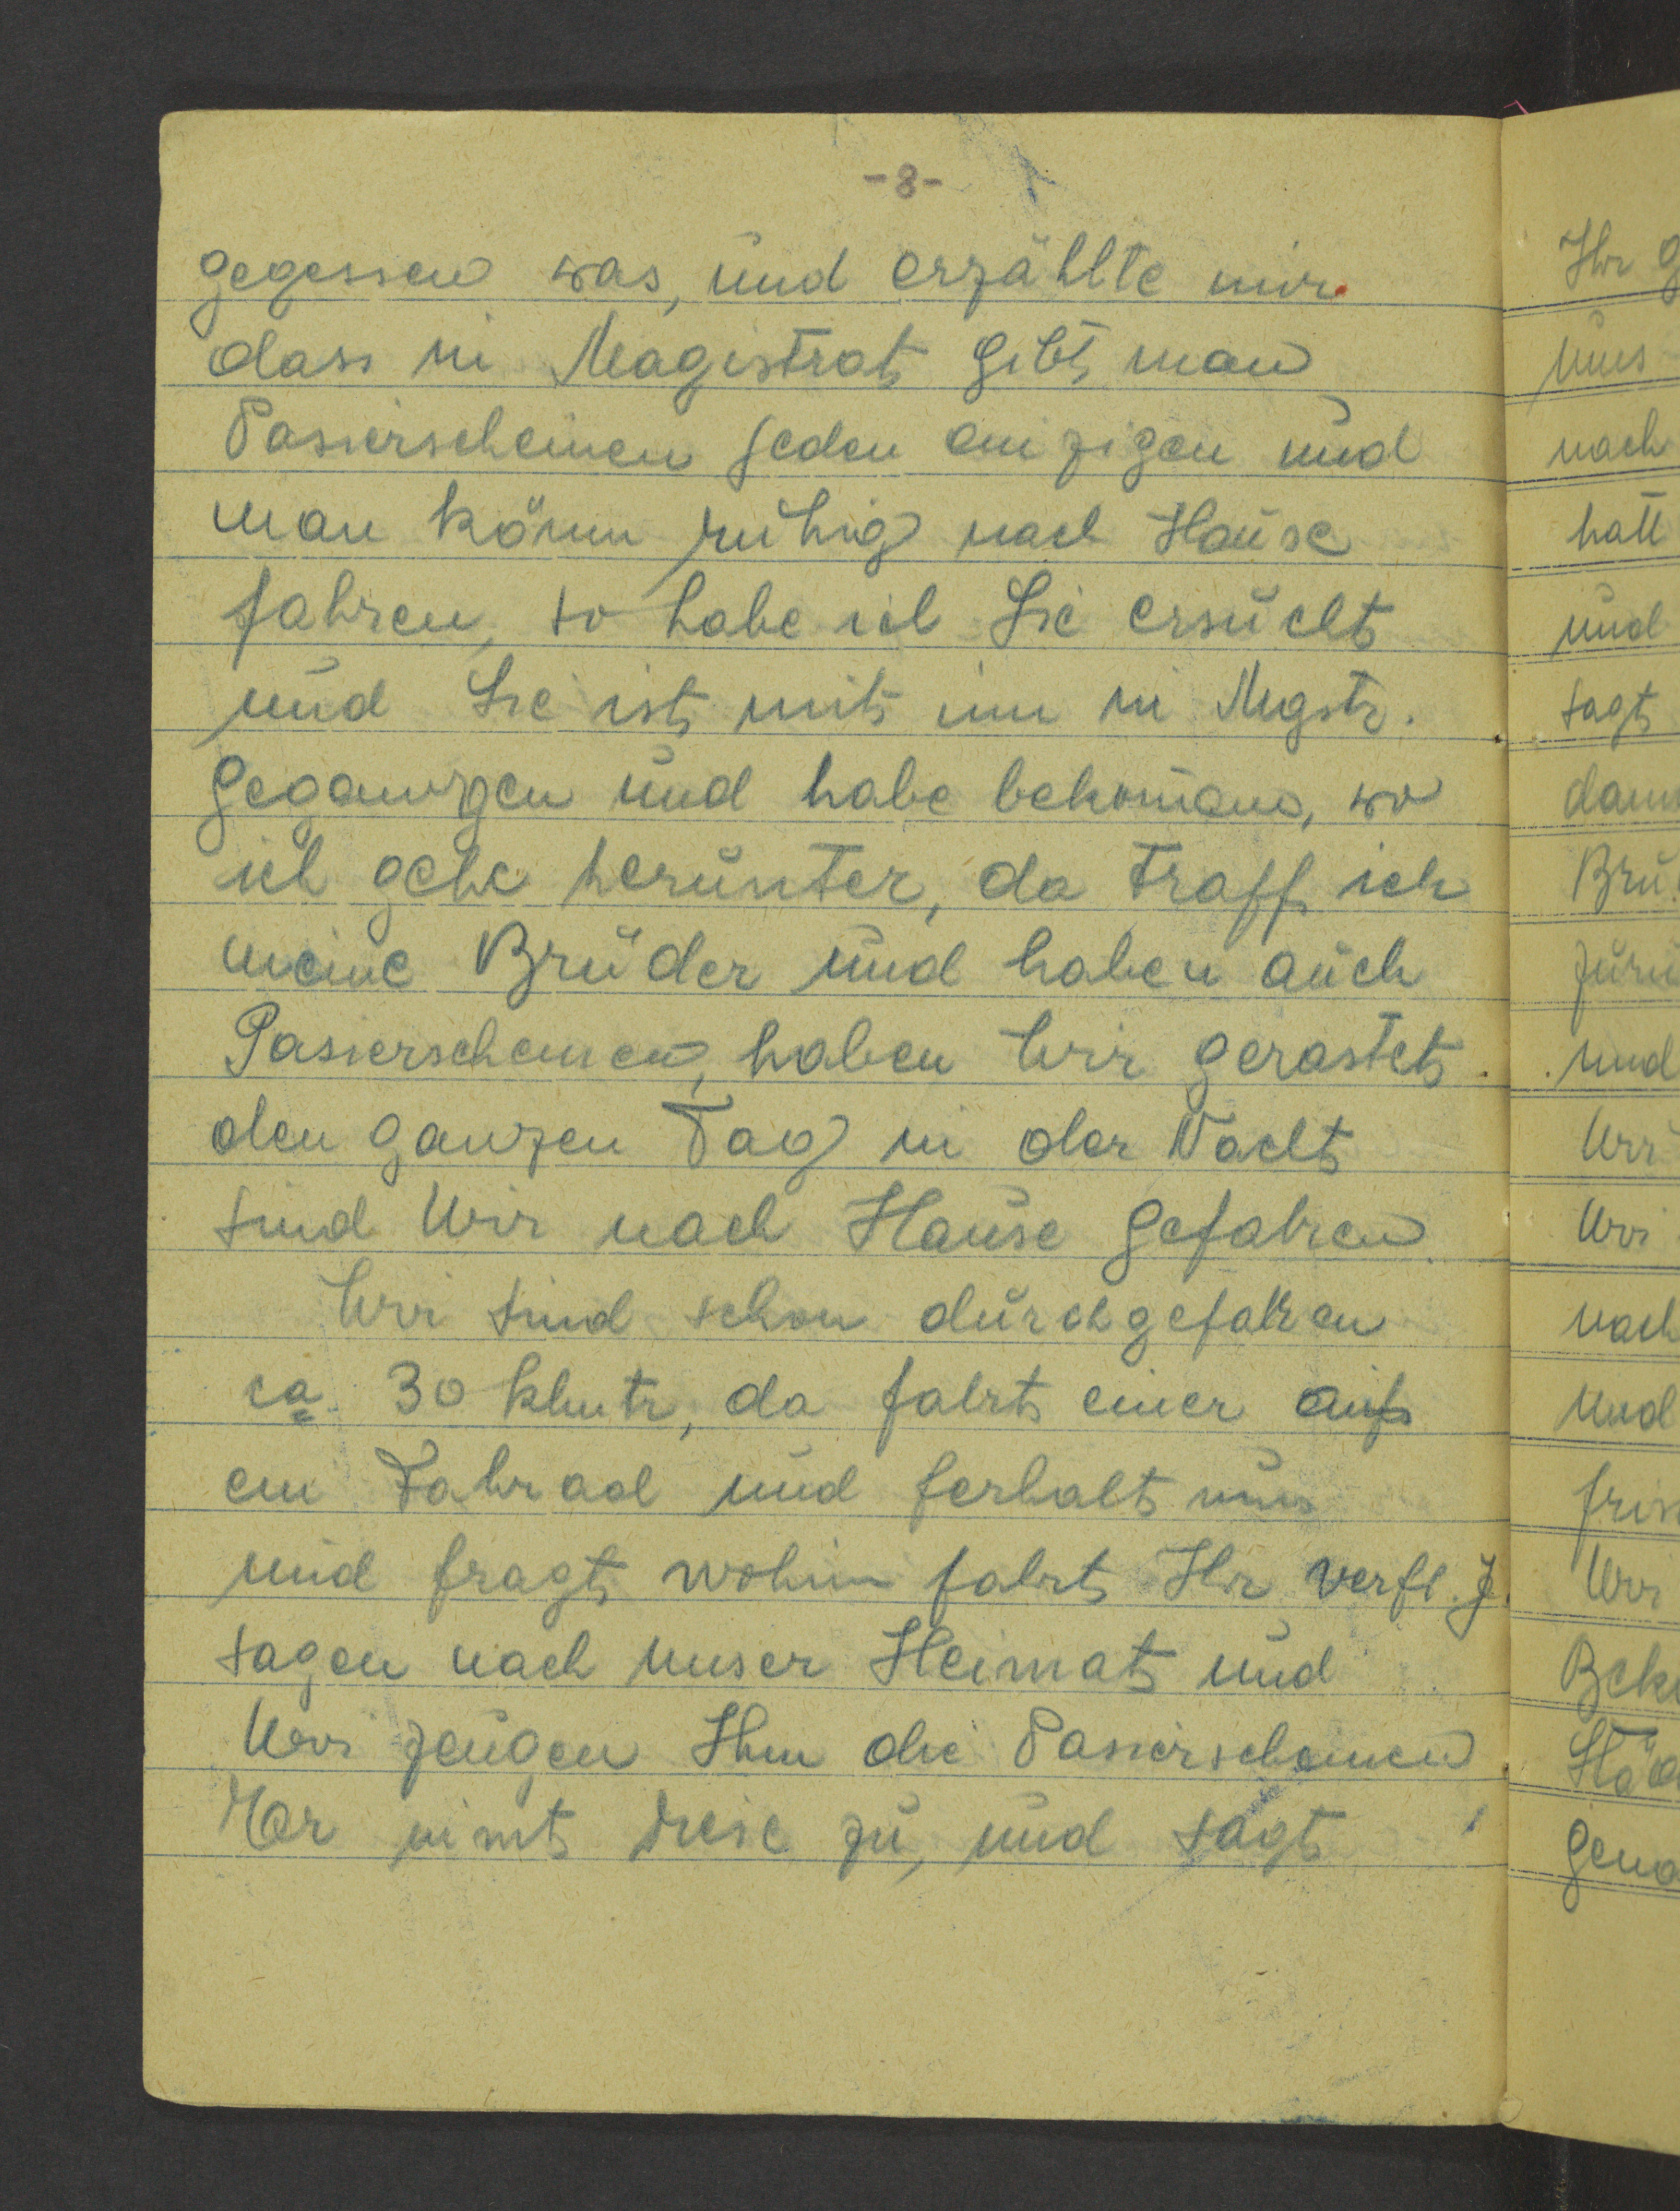 -8-
gegessen was, und erzählte mir
dass in Magistrat gibt man
Passierscheinen jeden einzigen und
man könn ruhig nach Hause
fahren, so habe ich Sie ersucht
und Sie ist mit im in Mgstr.
gegangen und habe bekomen, wo
ich gehe herunter, da traff ich
meine Brüder und haben auch
Passierscheinen, haben Wir gerastet
den ganzen Tag in der Nacht
sind Wir nach Hause gefahren.
Wir sind schon durchgefahren
ca 30 klmtr, da fahrt einer auf
ein Fahrad und ferhalt uns
und fragt wohin fahrt Ihr verfl. J.
sagen nach unser Heimat und
Wir zeugen Ihm die Passierscheinen
Er nimt diese zu, und sagt
Ihr g
uns
nach
hatt
und
sagt
dann
Brü
zurü
und
Wir
Wir
nach
und
fris
Wir
Beke
Städ
gena